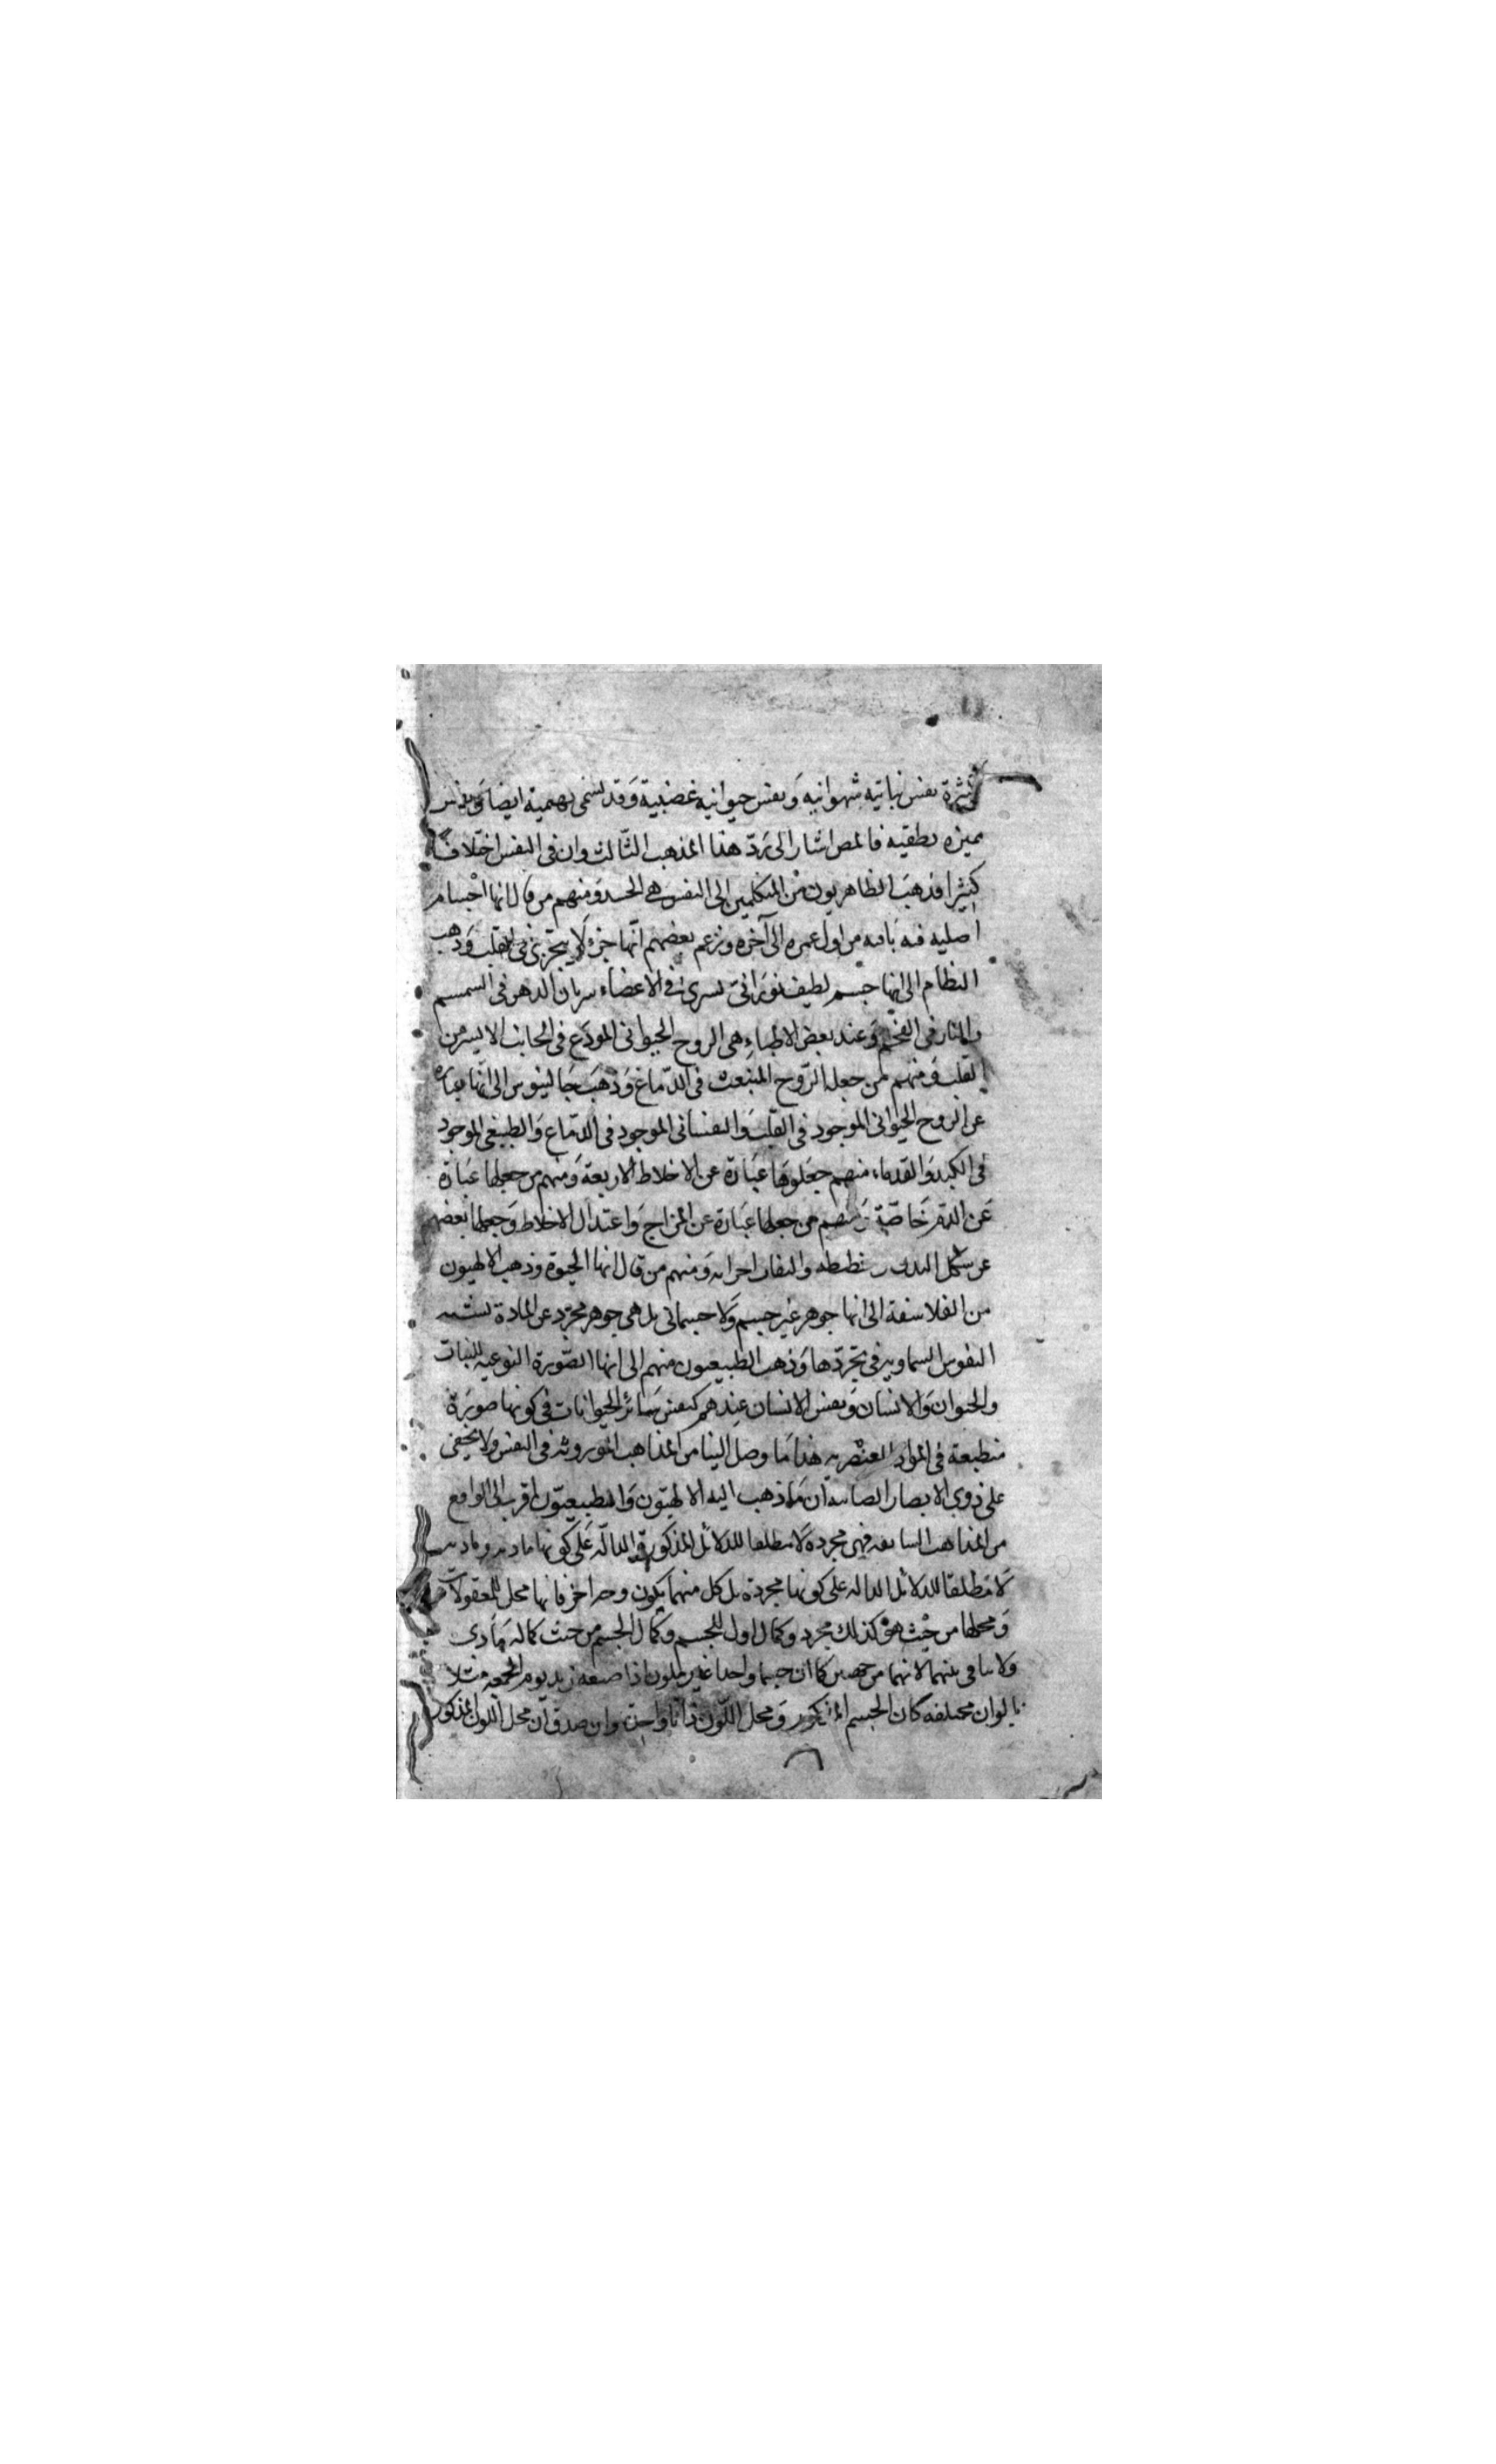 نفس نباتية شهوانية ونفس حيوانية غضبية وقد تسمى بهيمية ايضا ونفس
مميزه نطقيه فالمص اشار الى رد هذا المذهب الثالث وان فى النفس اختلافا
كثيرا فذهب الظاهريون من المتكلمين الى النفس هى الجسد ومنهم من قال انها اجسام
اصليه فيه باقيه من اول عمره الى آخره وزعم بعضهم انها جزء لا يتجزى فى القلب وذهب
النظام الى انها جسم لطيف نورانى تسرى فى الاعضاء سريان الدهن فى السمسم
والنار فى الفحم وعند بعض الاطباء هى الروح الحيوانى المودع فى الجانب الايسر من
القلب ومنهم من جعله الروح المنبعث فى الدماغ وذهب جالينوس الى انها عباره
عن الروح الحيوانى الموجود فى القلب والنفسانى الموجود فى الدماغ والطبيعى الموجود
فى الكبد والقدماء منهم جعلوها عبارة عن الاخلاط الاربعة ومنهم من جعلها عبارة
عن الدم خاصة ومنهم من جعلها عبارة عن المزاج واعتدال الاخلاط وجعلها بعضهم
عن شكل البدن وتخطيطه والتفات اجزايه ومنهم من قال انها الحيوة وذهب الالهيون
من الفلاسفة الى انها جوهر غير جسم ولا جسمانى بل هى جوهر مجرد عن المادة تشبه
النفوس السماويه فى تجردها وذهب الطبيعيون منهم الى انها الصورة النوعيه للنبات
والحيوان والانسان ونفس الانسان عندهم كنفس سائر الحيوانات فى كونها صورة
منطبعة فى المواد العنصريه هذا ما وصل الينا من المذاهب الموروثه فى النفس ولا يخفى
على ذوى الابصار الصائبه ان ما ذهب اليه الالهيون والطبيعيون اقرب الى الواقع
من المذاهب السابقه فهى مجردة لا مطلقا للدلائل المذكورة الدالة على كونها ماديه وماديه
لا مطلقا للدلائل الداله على كونها مجردة بل كل منهما يكون وجه اخر فانها محل للمعقولات
ومحلها من حيث هو كذلك مجرد وكمال اول للجسم وكمال الجسم من حيث كماله مادى
ولا تنافى بينهما لانهما من جهتين كما ان جسما واحدا غير ملون اذا صبغه زيد يوم الجمعه مثلا
بالوان مختلفه كان الجسم المذكور ومحل اللون ذاتا واحدة وان صدق ان محل اللون المذكور